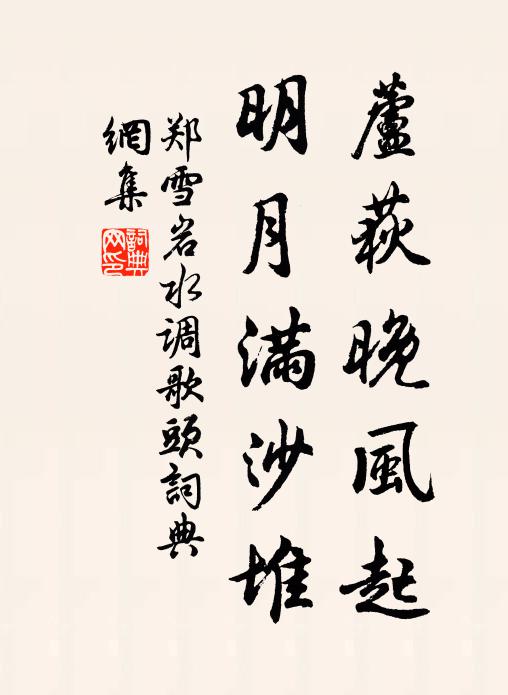 蘆荻晚風起
明月滿沙堆
郑雪岩水调歌頭詞典
網集
詞典網印